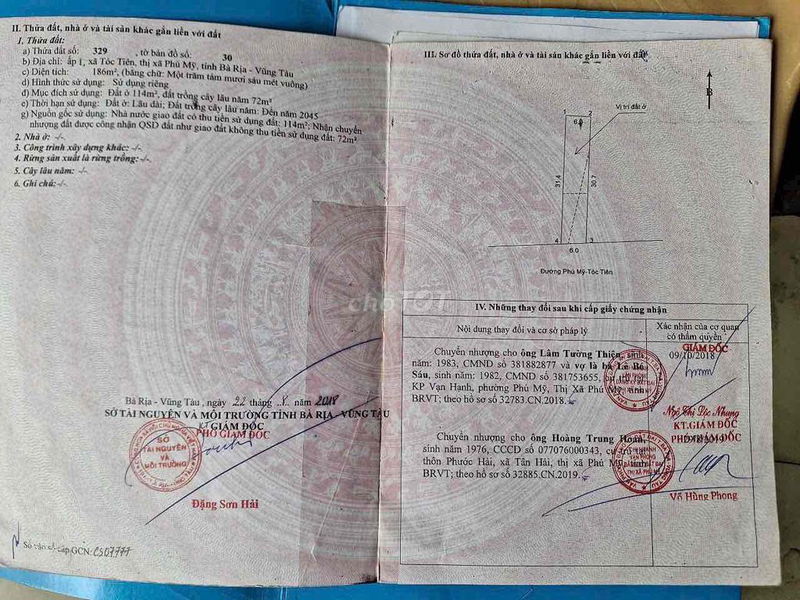 II. Thửa đất, nhà ở và tài sản khác gắn liền với đất
1. Thửa đất:
a) Thửa đất số: 329 , tờ bản đồ số: 30
b) Địa chỉ: ấp 1, xã Tóc Tiên, thị xã Phú Mỹ, tỉnh Bà Rịa - Vũng Tàu
c) Diện tích: 186m², (bằng chữ: Một trăm tám mươi sáu mét vuông)
d) Hình thức sử dụng: Sử dụng riêng
đ) Mục đích sử dụng: Đất ở 114m², đất trồng cây lâu năm 72m²
e) Thời hạn sử dụng: Đất ở: Lâu dài; Đất trồng cây lâu năm: Đến năm 2045
g) Nguồn gốc sử dụng: Nhà nước giao đất có thu tiền sử dụng đất: 114m²; Nhận chuyển
nhượng đất được công nhận QSD đất như giao đất không thu tiền sử dụng đất: 72m²
2. Nhà ở: -/-
3. Công trình xây dựng khác: -/-
4. Rừng sản xuất là rừng trồng: -/-
5. Cây lâu năm: -/-
6. Ghi chú: -/-
Bà Rịa - Vũng Tàu, ngày 22 tháng năm 2018
SỞ TÀI NGUYÊN VÀ MÔI TRƯỜNG TỈNH BÀ RỊA - VŨNG TÀU
KT.GIÁM ĐỐC
PHÓ GIÁM ĐỐC
SỞ
TÀI NGUYÊN
VÀ
MÔI TRƯỜNG
Đặng Sơn Hải
Số vào sổ cấp GCN: CS07777
III. Sơ đồ thửa đất, nhà ở và tài sản khác gắn liền với đất
B
Vị trí đất ở
1 2
6.0
31.4 30.7
4 3
6.0
Đường Phú Mỹ-Tóc Tiên
choTỐT
IV. Những thay đổi sau khi cấp giấy chứng nhận
Nội dung thay đổi và cơ sở pháp lý
Xác nhận của cơ quan
có thẩm quyền
GIÁM ĐỐC
Chuyển nhượng cho ông Lâm Tường Thiện, sinh
năm: 1983, CMND số 381882877 và vợ là bà Lê Bé
Sáu, sinh năm: 1982, CMND số 381753655, cư trú
KP Vạn Hạnh, phường Phú Mỹ, Thị Xã Phú Mỹ, tỉnh
BRVT; theo hồ sơ số 32783.CN.2018.
09/10/2018
Ngô Thị Lộc Nhung
KT.GIÁM ĐỐC
PHÓ GIÁM ĐỐC
Chuyển nhượng cho ông Hoàng Trung Hoan, sinh
năm 1976, CCCD số 077076000343, cư trú
thôn Phước Hải, xã Tân Hải, thị xã Phú Mỹ, tỉnh
BRVT; theo hồ sơ số 32885.CN.2019.
Võ Hùng Phong